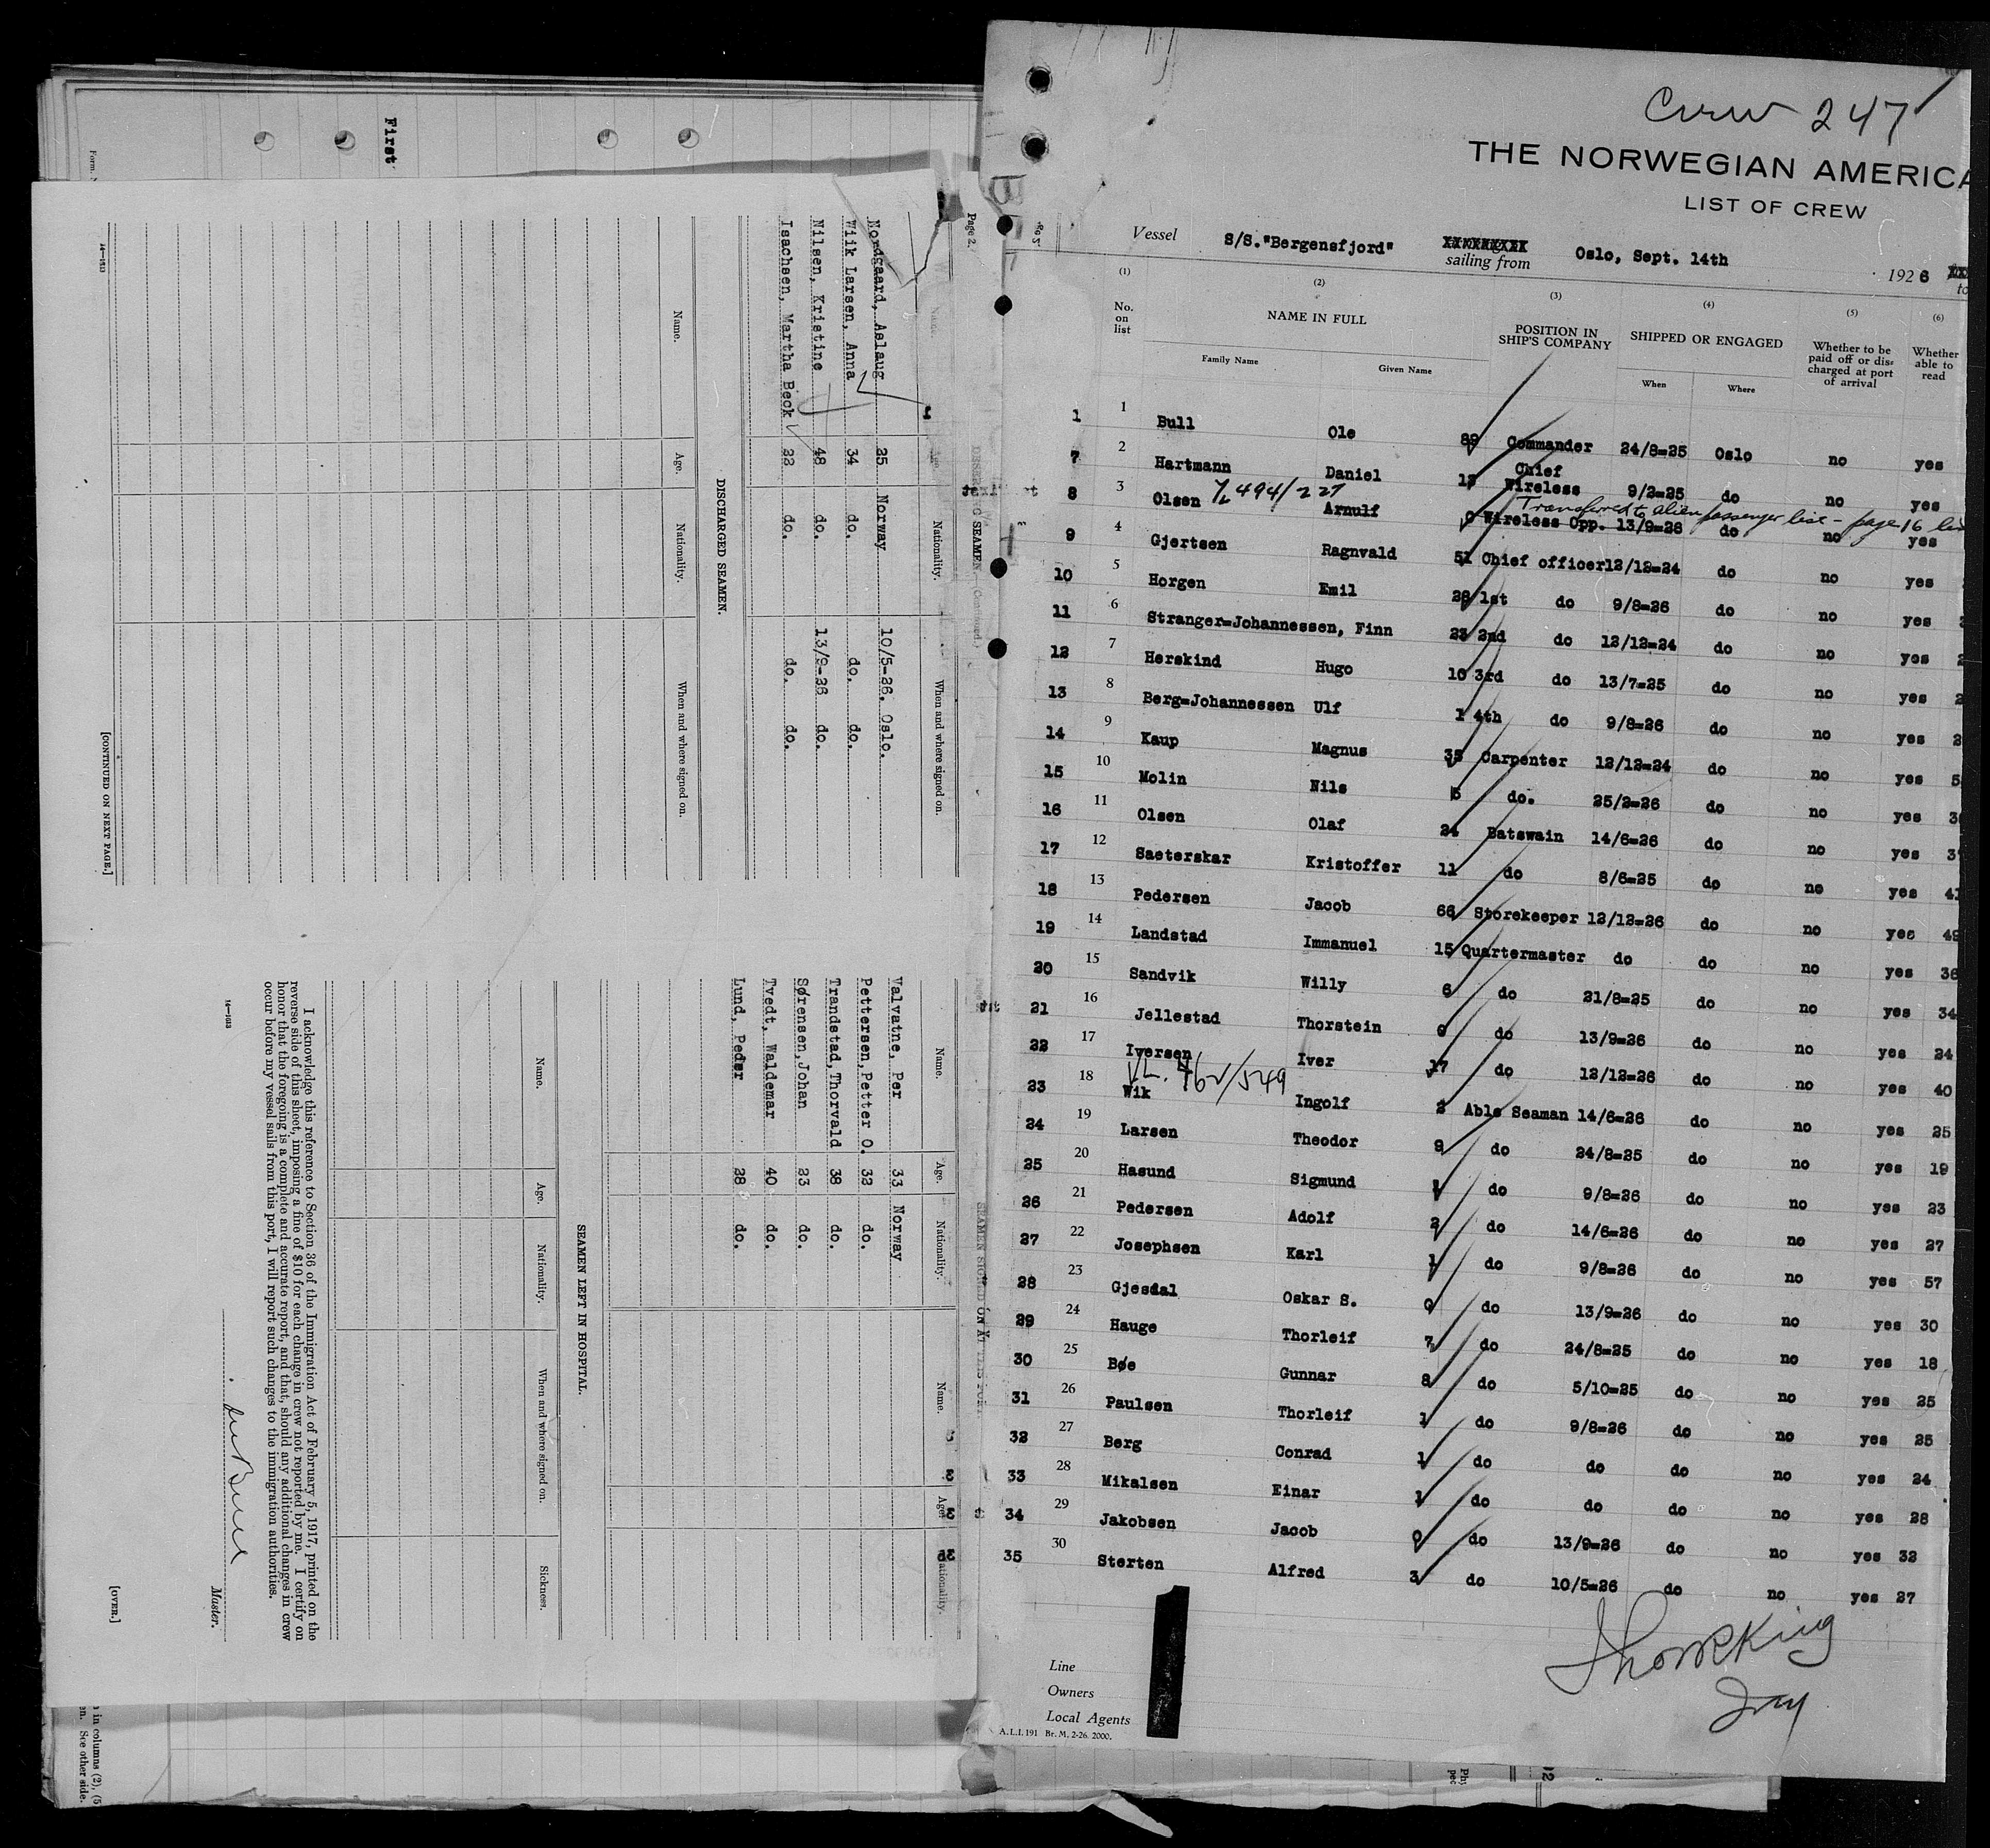 First
Page 2.
Name.
Age.
Nationality.
When and where signed on.
Nordgaard, Aslaug 25 Norway 10/5-26. Oslo.
Wiik Larsen, Anna 34 do. do. do.
Nilsen, Kristine 48 do. 13/9-26 do.
Isachsen, Martha Beck 22 do. do. do.
DISCHARGED SEAMEN.
Name.
Age.
Nationality.
When and where signed on.
[CONTINUED ON NEXT PAGE.]
14—1513
Name.
Age.
Nationality.
Name.
Age.
Nationality.
Valvatne, Per 33 Norway
Pettersen, Petter O. 32 do.
Trandstad, Thorvald 38 do.
Sørensen, Johan 23 do.
Tvedt, Waldemar 40 do.
Lund, Peder 28 do.
SEAMEN LEFT IN HOSPITAL.
Name.
Age.
Nationality.
When and where signed on.
Sickness.
I acknowledge this reference to Section 36 of the Immigration Act of February 5, 1917, printed on the
reverse side of this sheet, imposing a fine of $10 for each change in crew not reported by me. I certify on
honor that the foregoing is a complete and accurate report, and that, should any additional changes in crew
occur before my vessel sails from this port, I will report such changes to the immigration authorities.
Master.
14—1513
[OVER.]
in columns (2), (5
See other side.
Crew 247
THE NORWEGIAN AMERICA
LIST OF CREW
Vessel S/S."Bergensfjord" sailing from Oslo, Sept. 14th 1926
(1) (2) (3) (4) (5) (6)
No. on list
NAME IN FULL
Family Name
Given Name
POSITION IN SHIP'S COMPANY
SHIPPED OR ENGAGED
When
Where
Whether to be paid off or discharged at port of arrival
Whether able to read
1 1 Bull Ole 89 Commander 24/8-25 Oslo no yes
7 2 Hartmann Daniel 13 Chief Wireless 9/2-25 do no yes
494/227
Transferred to alien passenger list - page 16
8 3 Olsen Arnulf 0 Wireless Opp. 13/9-26 do no yes
9 4 Gjertsen Ragnvald 51 Chief officer 12/12-24 do no yes
10 5 Horgen Emil 28 1st do 9/8-26 do no yes
11 6 Stranger-Johannessen, Finn 23 2nd do 12/12-24 do no yes
12 7 Herskind Hugo 10 3rd do 13/7-25 do no yes
13 8 Berg-Johannessen Ulf 1 4th do 9/8-26 do no yes
14 9 Kaup Magnus 35 Carpenter 12/12-24 do no yes
15 10 Molin Nils 5 do. 25/2-26 do no yes
16 11 Olsen Olaf 24 Batswain 14/6-26 do no yes
17 12 Saeterskar Kristoffer 11 do 8/6-25 do no yes
18 13 Pedersen Jacob 66 Storekeeper 12/12-26 do no yes
19 14 Landstad Immanuel 15 Quartermaster do do no yes 36
20 15 Sandvik Willy 6 do 21/8-25 do no yes 34
21 16 Jellestad Thorstein 0 do 13/9-26 do no yes 24
22 17 Iversen Iver 17 do 12/12-26 do no yes 40
23 18 Wik Ingolf 2 Able Seaman 14/6-26 do no yes 25
24 19 Larsen Theodor 9 do 24/8-25 do no yes 19
25 20 Hasund Sigmund 1 do 9/8-26 do no yes 23
26 21 Pedersen Adolf 2 do 14/6-26 do no yes 27
27 22 Josephsen Karl 1 do 9/8-26 do no yes 57
28 23 Gjesdal Oskar S. 0 do 13/9-26 do no yes 30
29 24 Hauge Thorleif 7 do 24/8-25 do no yes 18
30 25 Bøe Gunnar 8 do 5/10-25 do no yes 25
31 26 Paulsen Thorleif 1 do 9/8-26 do no yes 25
32 27 Berg Conrad 1 do do do no yes 24
33 28 Mikalsen Einar 1 do do do no yes 28
34 29 Jakobsen Jacob 0 do 13/9-26 do no yes 32
35 30 Sterten Alfred 3 do 10/5-26 do no yes 27
Line
Owners
Local Agents
A.L.I. 191 Br. M. 2-26. 2000.